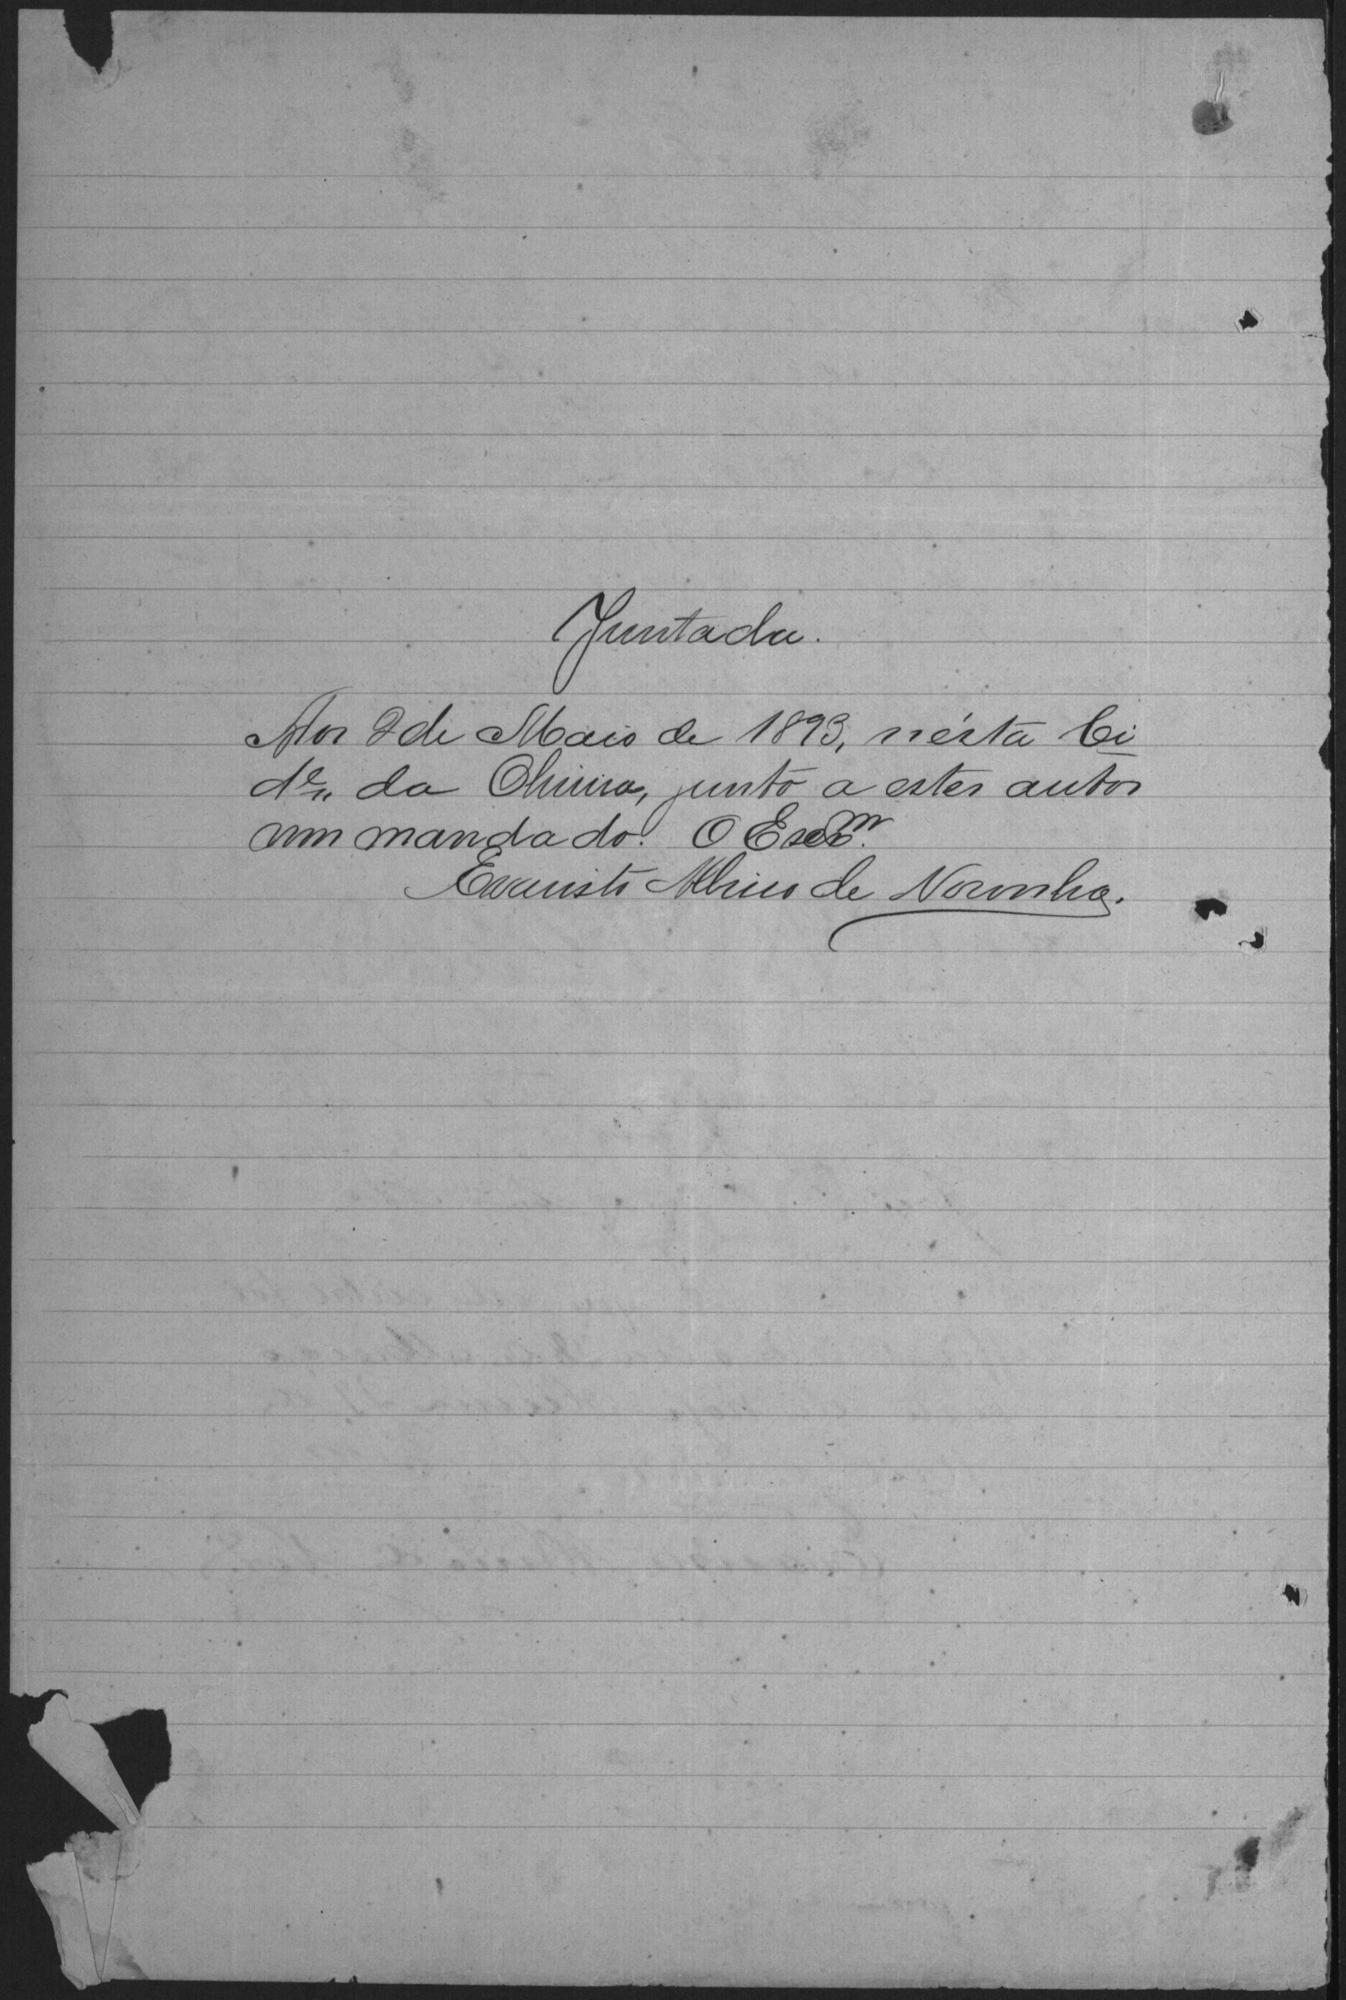 Juntada.
Aos 2 de Maio de 1893, nésta Ci
de,, da Oliveira, junto a estes autos
um mandado. O Escr.m
Evaristo Albino de Noronha.